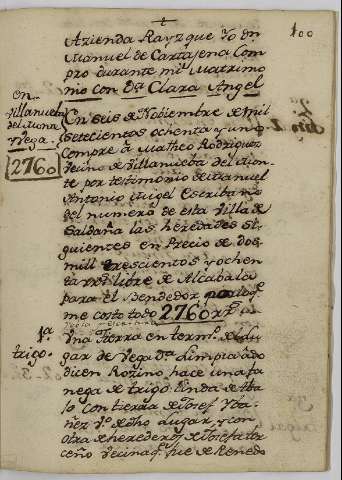 100
Azienda Rayz que Yo Dn
Manuel de Cartajena Com
pro durante mi Matrimo
nio con Dª Clara Angel
en
Villanueba
del Mon
y Vega
2760
En seis de Nobiembre de mil
setecientos ochenta y un
Compre â Matheo Rodriguez
Vecino de Villanueba del Mon
te por testimonio de Manuel
Antonio Angel Escribano
del numero de esta Villa de
Saldaña las heredades si
guientes en Precio de dos
mill trescientos y ochen
ta rrs libre de Alcabala
para el Bendedor
me costo todo 2760 rrs
1ª
trigo
Vna tierra en termº de Lu
gar de Vega Dª Limpia ado
dicen Rozino, hace una fa
nega de trigo: linda de Aba
Jo con tierra de Josef Yba
ñez Vº de dho Lugar, y con
otra de herederos de Josefa
ceño Vecina q fue de Renedo